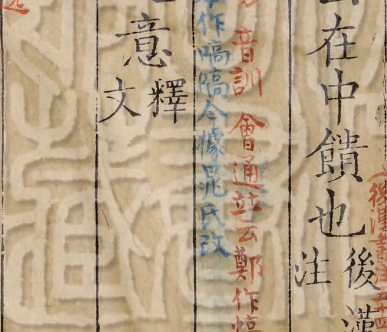 在中饋也
後漢
注
音訓 會通並云鄭作
作嗃嗃今據晁氏改
意
釋
文